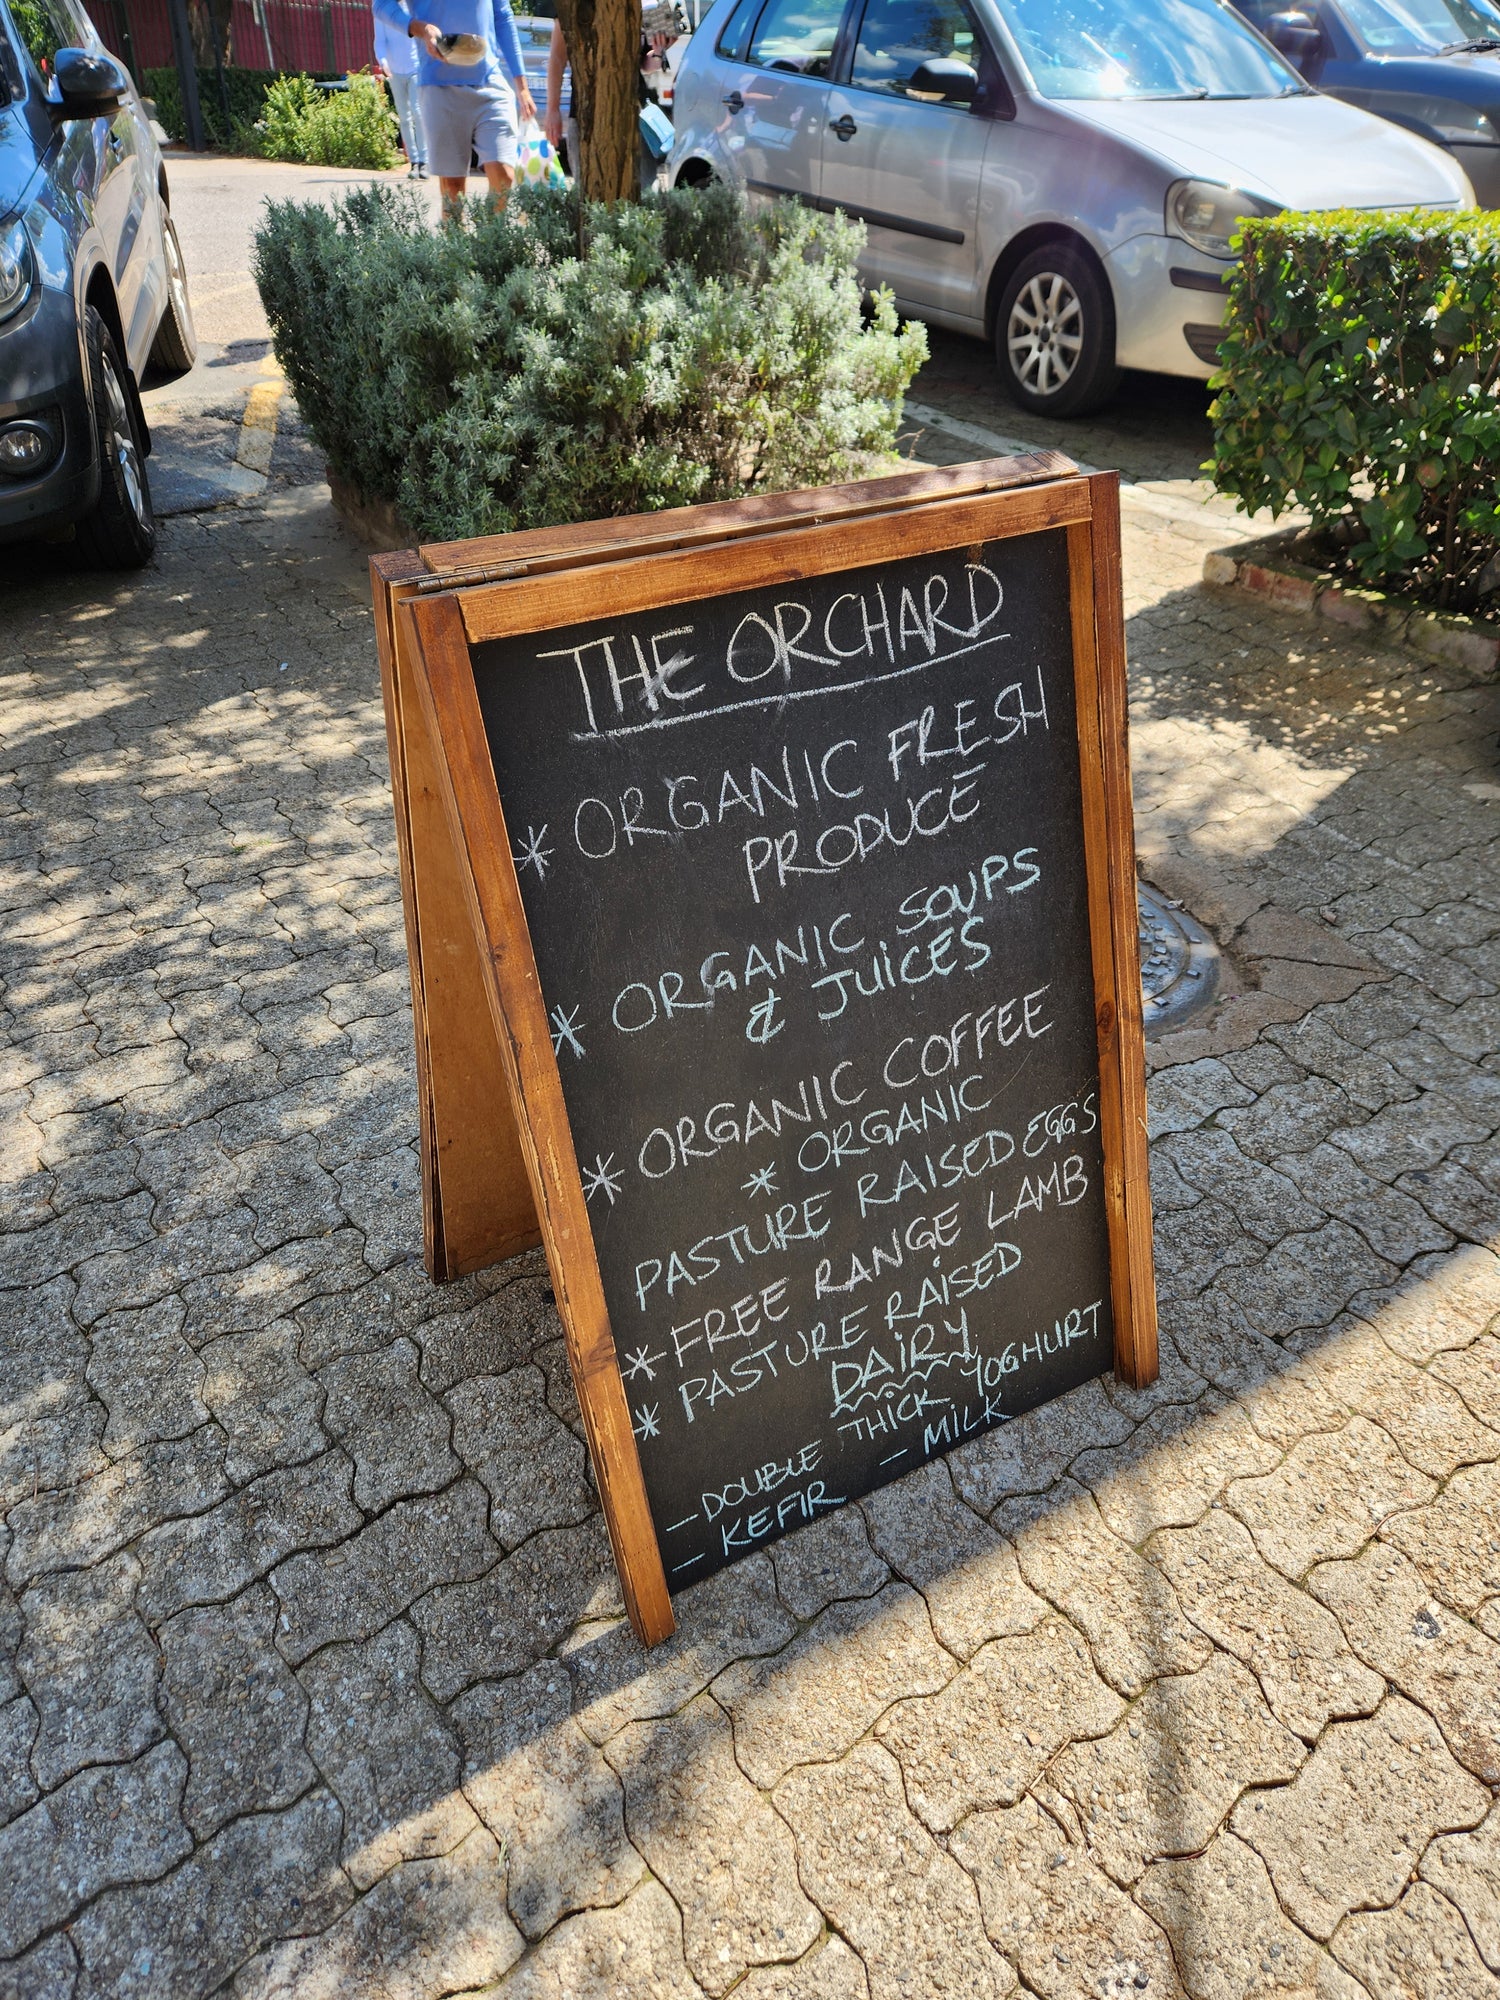 THE ORCHARD
* ORGANIC FRESH
PRODUCE
* ORGANIC SOUPS
& JUiCES
* ORGANIC COFFEE
* ORGANIC
PASTURE RAISED EGGS
* FREE RANGE LAMB
* PASTURE RAISED
DAiRY
- DOUBLE THiCK YOGHURT
- KEFIR - MiLK